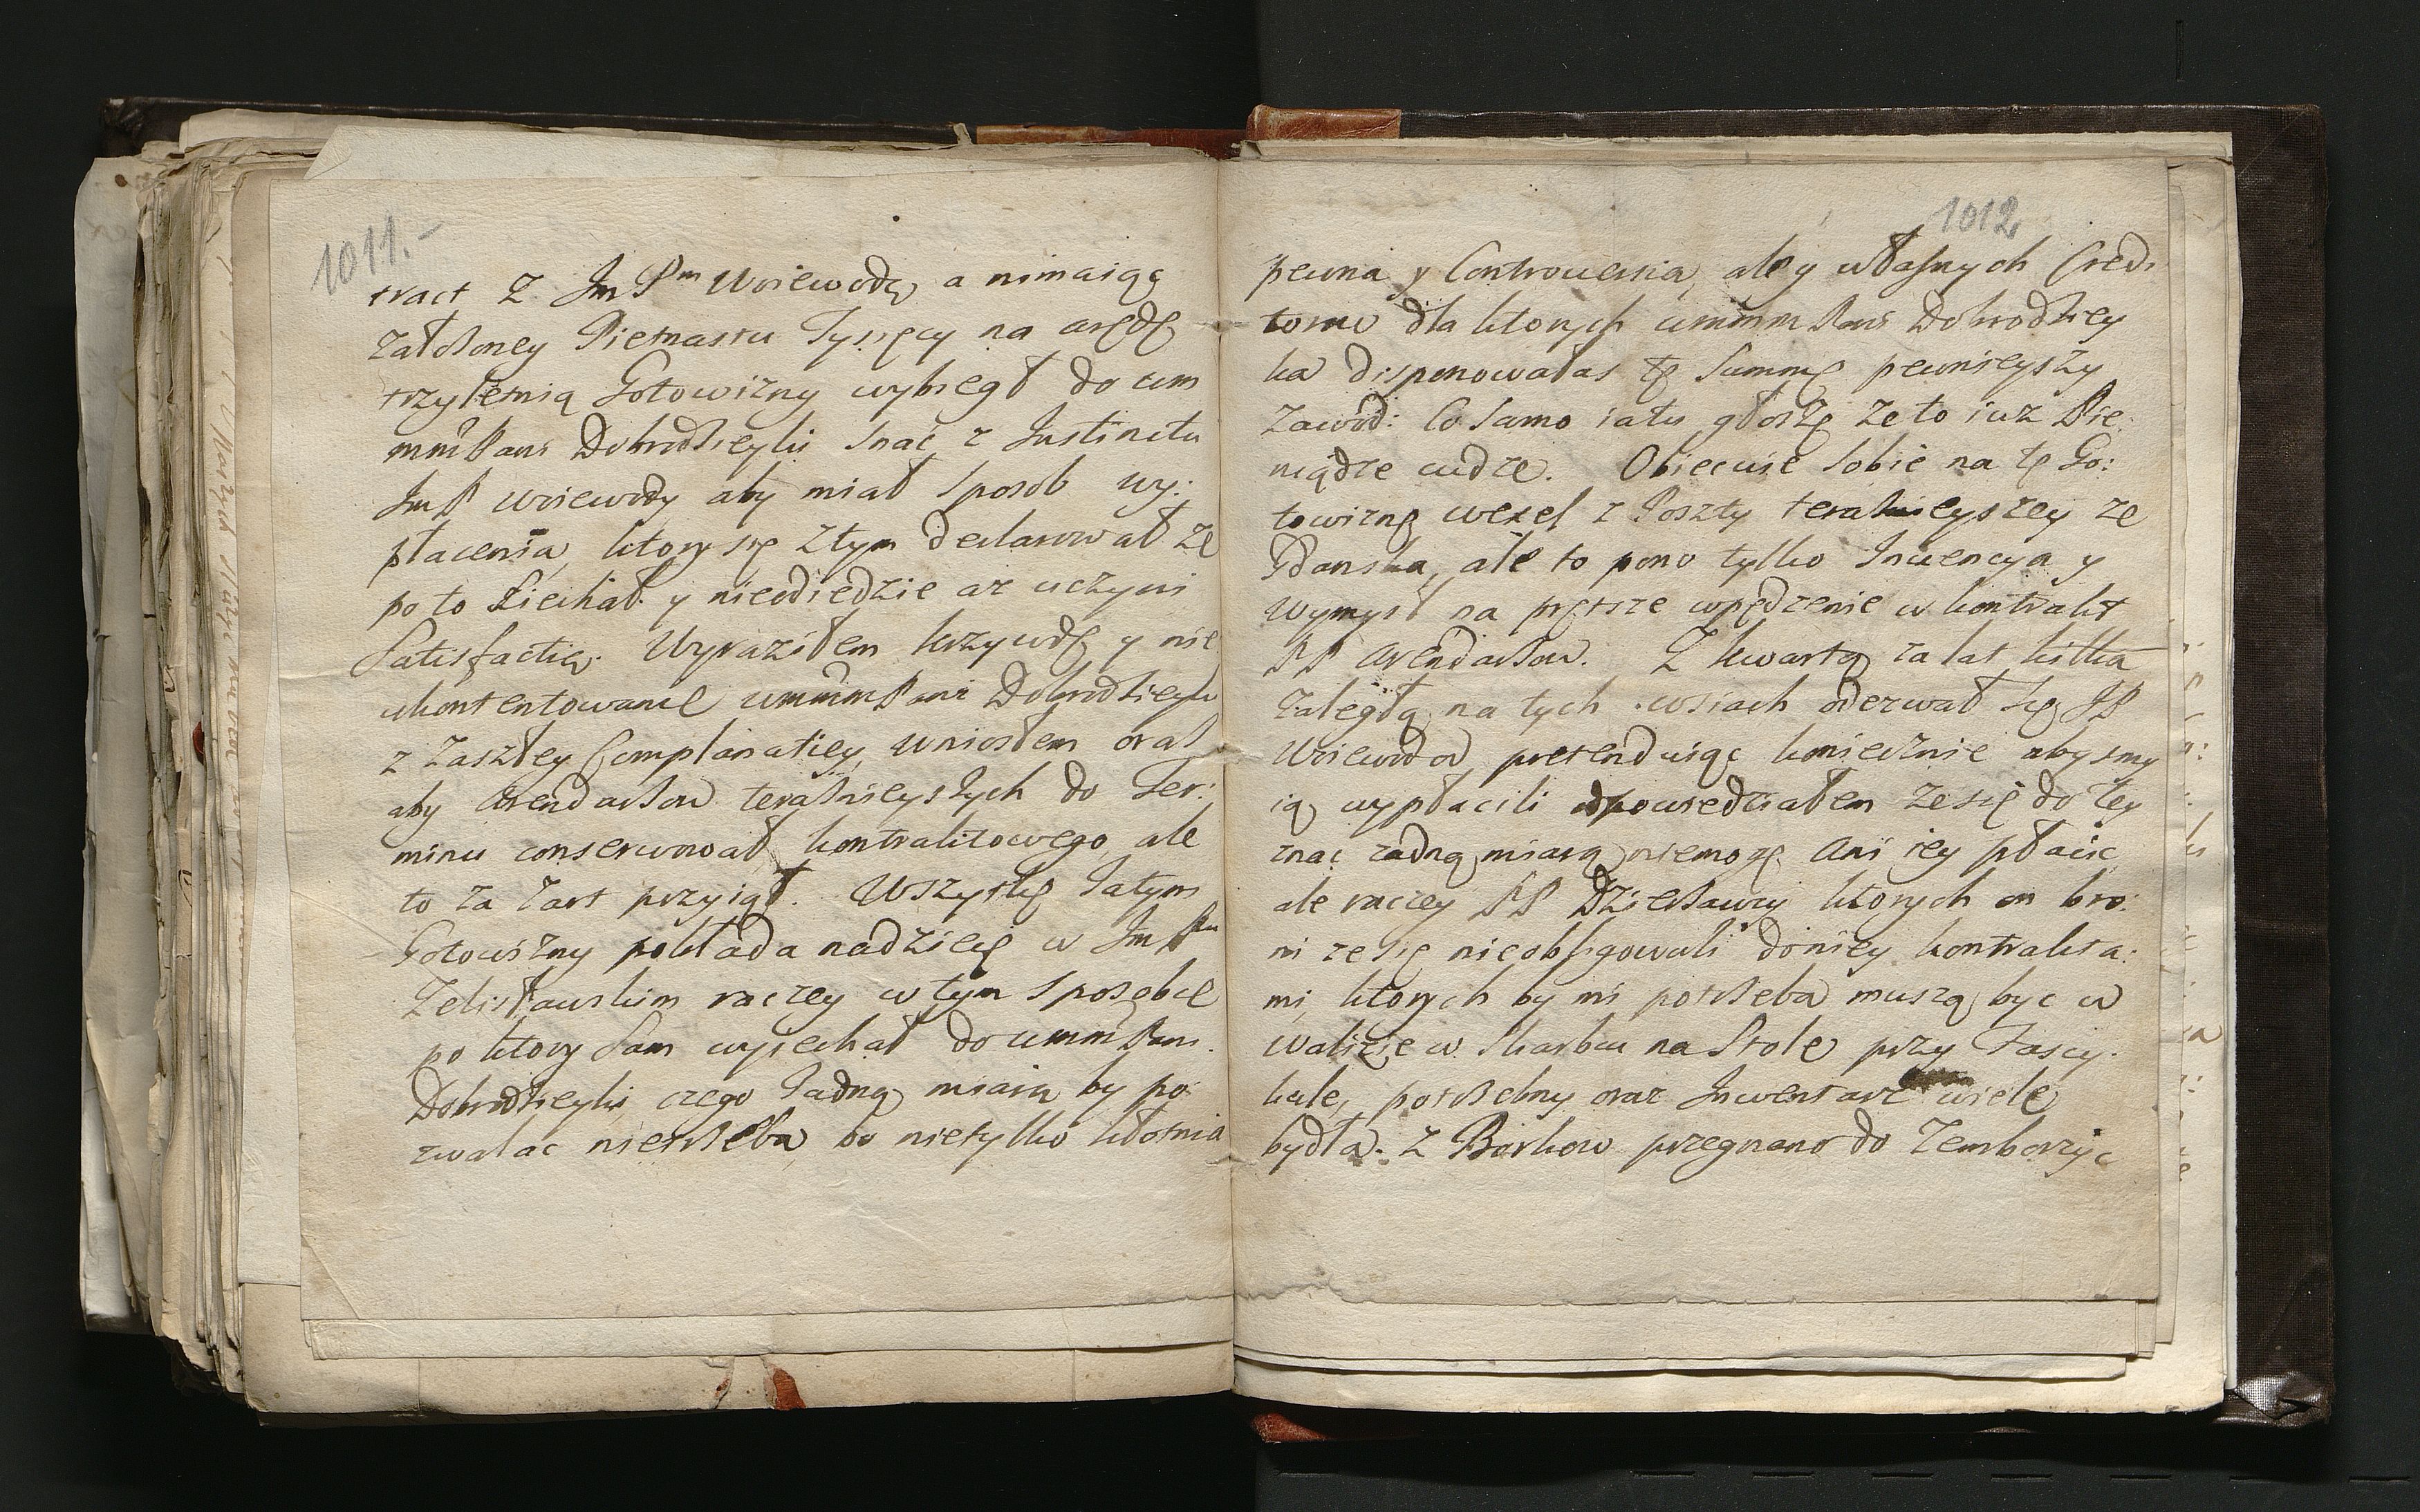 1011.-
tract z Jm Pm Woiewodą, a nimaiąc
założoney Pietnastu Tysięcy na arędę
trzyletnią Gotowizny wybiegł do wm
mm Pani Dobrodzieyki snać z Instinctu
JmP Woiewody aby miał sposób wy:
płacenia, ktory się ztym declarował że
po to ziechał y nieodiedzie aż uczyni
Satisfactią. Wyraziłem krzywdę y nie
ukontentowanie wmmm Pani Dobrodzieyki
z zaszłey Complanatiey, wniosłem oraz
aby Arendarzow teraznieyszych do Ter:
minu conserwował kontraktowego, ale
to za żart przyiął. Wszystkę zatym
Gotowizny pokłada nadzieię w Jm Pu
Zelisławskim raczey w tym sposobie
po ktory sam wyiechał do wmm Pani
Dobrodzieyki czego żadną miarą by po:
zwalac nietrzeba, bo nietylko kłotnia
1012
pewna y Controwersia, ale y własnych Cred:
torow dla ktorych wmmm Pani Dobrodziey
ka disponowałas tę Summę pewnieyszy
zawod: Co samo iatu głoszę że to iuż Pie:
niądze cudze. Obiecuie sobie na tę Go:
towiznę wexel z Poszty teraznieyszey ze
Gdanska, ale to pono tylko Inwencya y
wymysł na prętsze wpędzenie w kontrakt
PP Arendarzow. Z kwartą za lat kilka
zaległą na tych wsiach oderwał się JP
Woiewoda, pretenduiąc koniecznie abysmy
ią wypłacili odpowiedziałem że się do tey
znac żadną miarą niemogę. Ani iey płacic
ale raczey PP Dzierżawcy ktorych on bro:
ni że się nieobligowali do niey kontrakta:
mi, ktorych by mi potrzeba muszą byc w
walizie w Skarbcu na Stole przy Fascy:
kule, potrzebny oraz Inwentarz wiele
bydła. Z Borkow przegnano do Zemborzyc